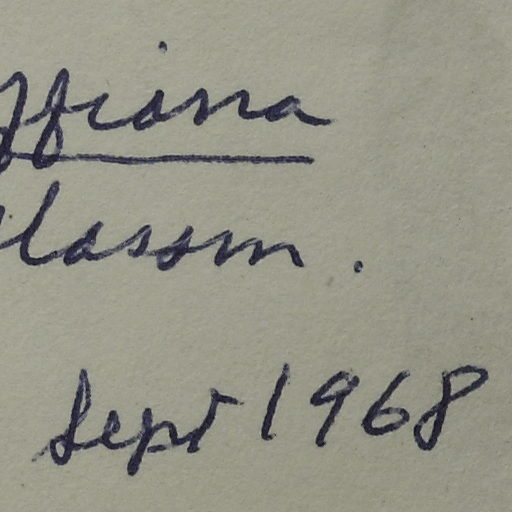 ffiana
lassom.
Sept 1968